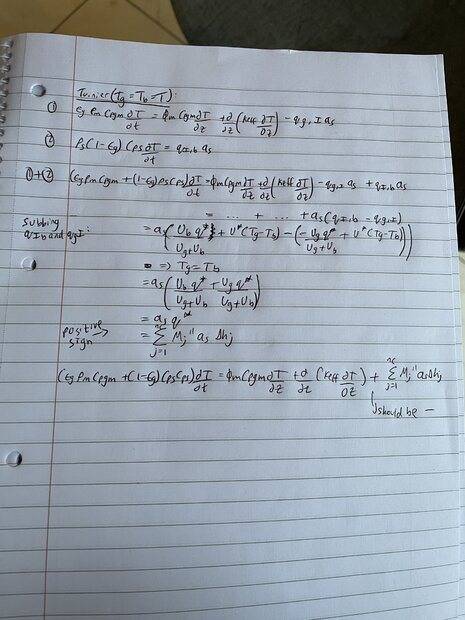 Tunnier (Tg = Tb = T):
① εg ρm Cpgm ∂T/∂t = ϕm Cpgm ∂T/∂z + ∂/∂z (Keff ∂T/∂z) - qg,I as
② ρs(1-εg) Cps ∂T/∂t = qI,b as
①+② (εg ρm Cpgm + (1-εg) ρs Cps) ∂T/∂t = ϕm Cpgm ∂T/∂z + ∂/∂z (Keff ∂T/∂z) - qg,I as + qI,b as
= ... + ... + as (qI,b - qg,I)
Subbing qIb and qgI: = as (Ub q*/(Ug+Ub) + U*(Tg-Tb) - (-Ug q*/(Ug+Ub) + U*(Tg-Tb)))
⇒ Tg = Tb
= as (Ub q*/(Ug+Ub) + Ug q*/(Ug+Ub))
= as q*
positive sign → = nc Σ j=1 Mj'' as Δhj
(εg ρm Cpgm + (1-εg) ρs Cps) ∂T/∂t = ϕm Cpgm ∂T/∂z + ∂/∂z (Keff ∂T/∂z) + nc Σ j=1 Mj'' as Δhj
should be -